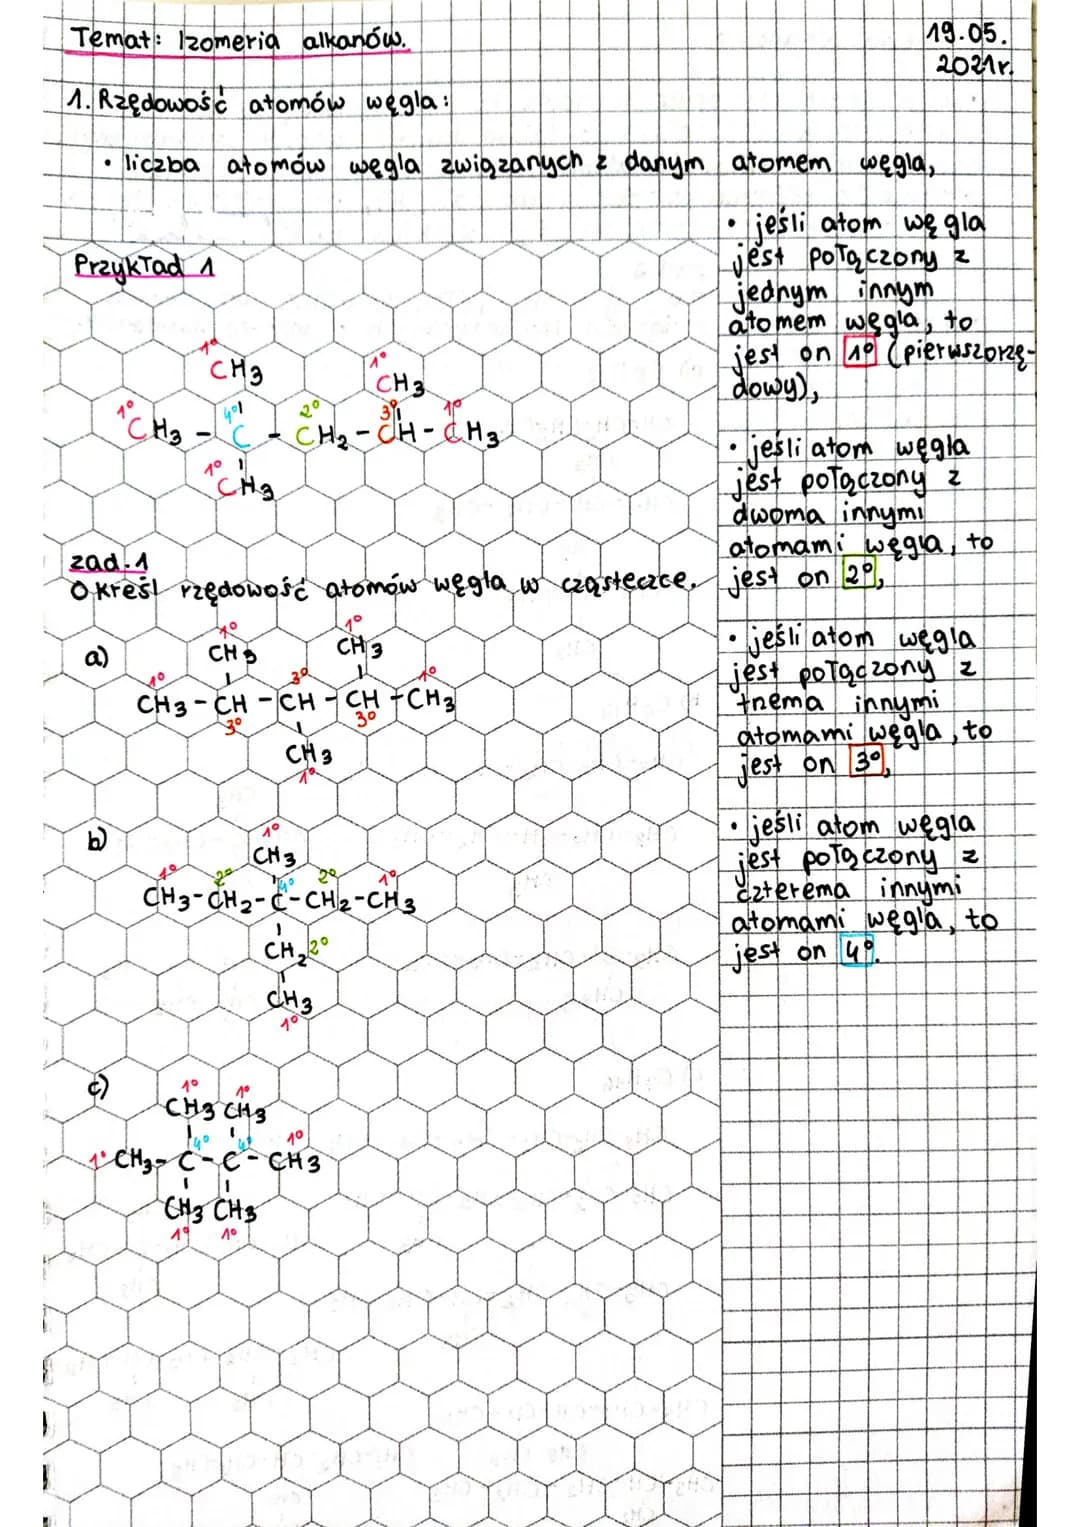 Temat: Izomeria alkanów.
19.05.
2021r.
1. Rzędowość atomów węgla:
• liczba atomów węgla związanych z danym atomem węgla,
Przykład 1
1° 1°
CH3 CH3
1° 4° 2° 3° 1°
CH3 - C - CH2 - CH - CH3
1°
CH3
zad.1
Określ rzędowość atomów węgla w cząsteczce.
a)
1° 1°
CH3 CH3
1° 3° 1°
CH3 - CH - CH - CH - CH3
3° 3°
CH3
1°
b)
1°
CH3
1° 2° 4° 2° 1°
CH3-CH2-C-CH2-CH3
CH2 2°
CH3
1°
c)
1° 1°
CH3 CH3
4° 4° 1°
1° CH3- C - C - CH3
CH3 CH3
1° 1°
• jeśli atom węgla
jest połączony z
jednym innym
atomem węgla, to
jest on 1° (pierwszorzę-
dowy),
• jeśli atom węgla
jest połączony z
dwoma innymi
atomami węgla, to
jest on 2°,
• jeśli atom węgla
jest połączony z
trzema innymi
atomami węgla, to
jest on 3°,
• jeśli atom węgla
jest połączony z
czterema innymi
atomami węgla, to
jest on 4°.